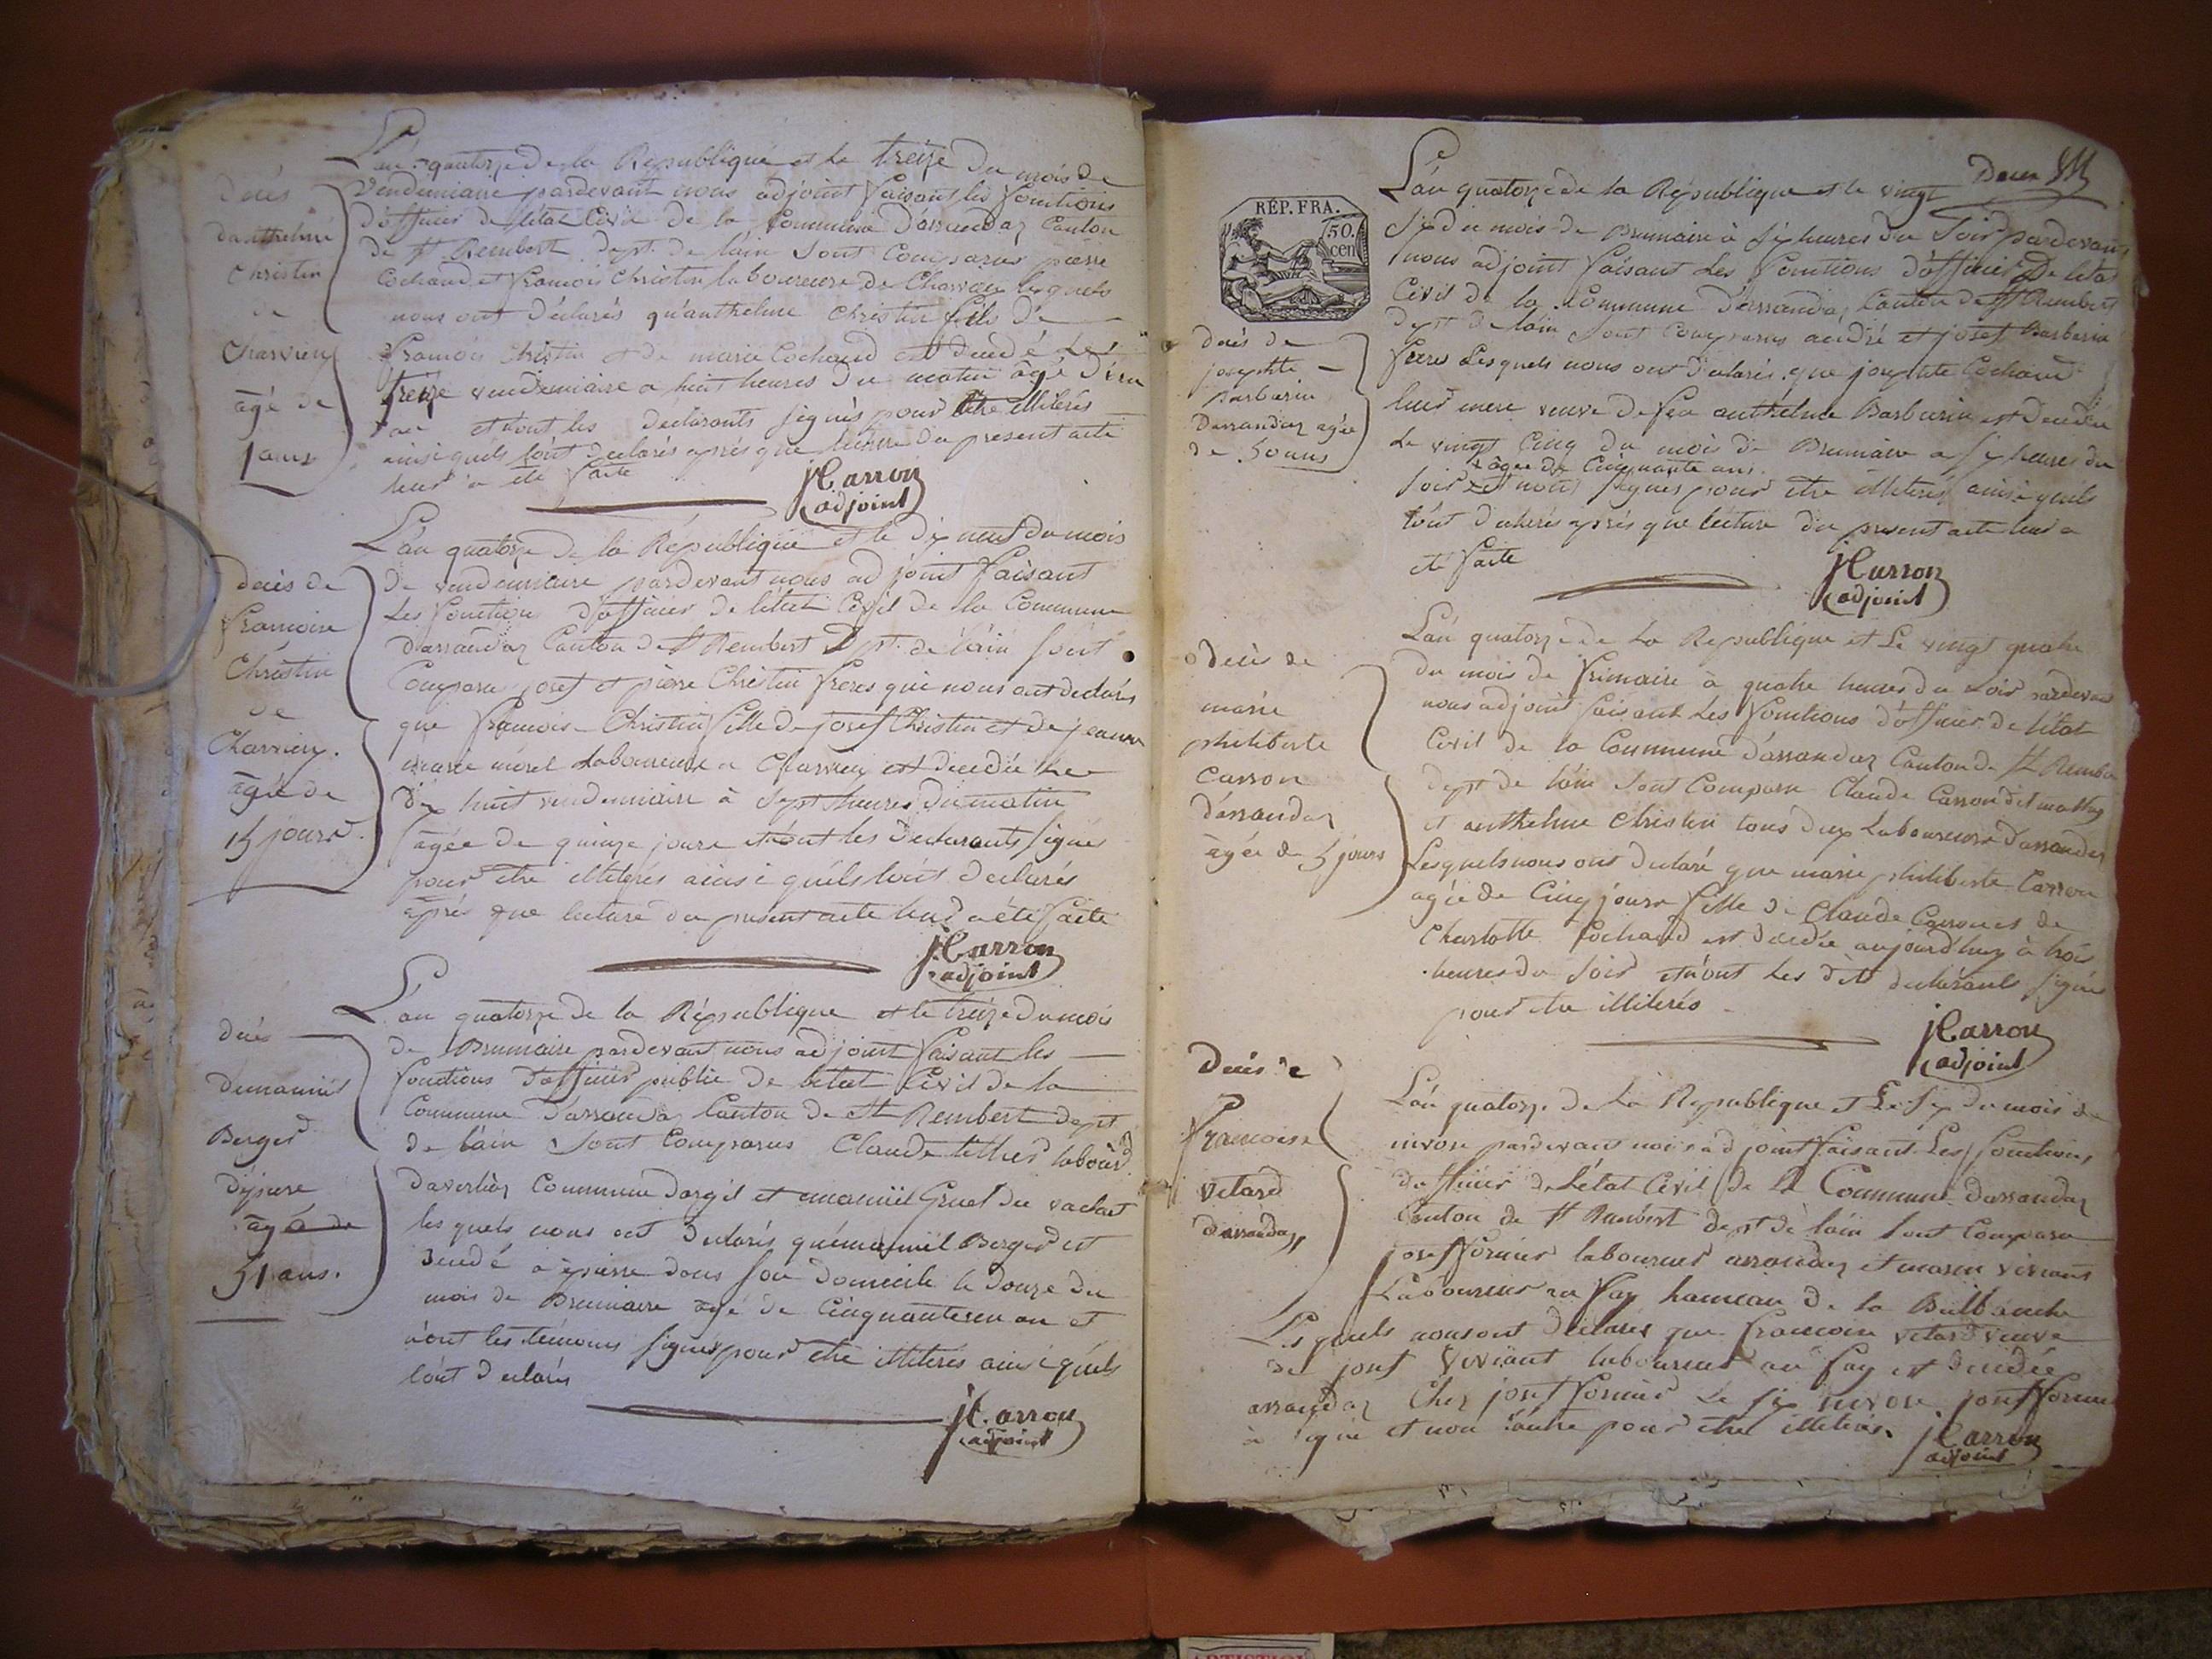 décès
danthelme
Christin
de
Charvieux
agé de
1 ans
L'an quatorze de la République et le treize du mois de
vendemiaire pardevant nous adjoint faisant les fonctions
d'officier de létat Civil de la Commune d'arrandaz Canton
de St Rembert dept. de lain sont Comparus pierre
Cochand et francois Christin laboureurs de Charvieux lesquels
nous ont déclarés qu'anthelme Christin fils de
francois Christin et de marie Cochand est decedé le
treize vendemiaire a huit heures du matin agé d'un
an et n'ont les declarants signés pour être illiterés
ainsi quils l'ont declarés après que lecture du present acte
leur a été faite
JCarron
adjoint
décès de
francoise
Christin
de
Charvieux.
agée de
15 jours.
L'an quatorze de la République et le dix neuf du mois
de vendemiaire pardevant nous adjoint faisant
Les fonction d'officier de létat Civil de la Commune
darrandaz Canton de St Rembert Dpt. de lain sont
Comparu josef et pierre Christin freres qui nous ont declarés
que francoise Christin fille de josef Christin et de jeanne
marie morel Laboureur a Charvieux est decedée le
dix huit vendemiaire à sept heures du matin
agée de quinze jours et n'ont les declarants signés
pour etre illiterés ainsi quils lont declarés
après que lecture du present acte leur a été faite
JCarron
adjoint
décès
demanuel
Berger
dépierre
agé de
51 ans.
L'an quatorze de la République et le treize du mois
de Brumaire pardevant nous adjoint faisant les
fonctions d'officier public de letat Civil de la
Commune d'arrandaz Canton de St Rembert dept.
de lain sont Comparus Claude labour.
Commune dargil et emanuel Gruel du vachat
les quels nous ont declarés quémanuel Berger est
decedé à épierre dans son domicile le douze du
mois de Brumaire agé de Cinquanteun an et
n'ont les témoins signés pour etre illiterés ainsi quils
lont declarés
JCarron
adjoint
RÉP. FRA.
50.
cen
décès de
josephte
Barbarin
Darrandaz agée
de 50 ans
L'an quatorze de la République et le vingt
six du mois de Brumaire à six heures du soir pardevant
nous adjoint faisant Les fonctions d'officier De létat
Civil de la Commune d'arrandaz Canton de St Rembert
dept de lain sont Comparus andré et josef Barbarin
freres Lesquels nous ont declarés que josephte Cochand
leur mere veuve de feu anthelme Barbarin est decedée
Le vingt Cinq du mois de Brumaire a six heures du
agée de Cinquante ans.
soir et n'ont signés pour etre illiterés ainsi quils
lont declarés après que lecture du present acte leur a
été faite
JCarron
adjoint
décès de
marie
philiberte
Carron
d'arrandaz
agée de 5 jours
L'an quatorze de La République et Le vingt quatre
du mois de frimaire à quatre heures du soir pardevant
nous adjoint faisant Les fonctions d'officier de létat
Civil de la Commune d'arrandaz Canton de St Rembert
dept de lain sont Comparu Claude Carron dit mathieu
et anthelme Christin tous deux Laboureurs d'arrandaz
Lesquels nous ont declaré que marie philiberte Carron
agée de Cinq jours fille de Claude Carron et de
Charlotte Cochand est decedée aujourd'huy à trois
heures du soir et n'ont Les dits declarants signés
pour etre illiterés
JCarron
adjoint
décès de
francoise
vetard
darrandaz
L'an quatorze de La République et Le six du mois de
nivose pardevant nous adjoint faisant Les fonctions
dofficier de Létat Civil de La Commune darrandaz
Canton de St Rembert dept de lain sont Comparu
josef fornier laboureur arrandaz et viviant
Laboureur au fay hameau de la Balbanche
Lesquels nous ont declarés que francoise vetard veuve
de josef viviant laboureur au fay est decedée
arrandaz Chez josef fornier Le six nivose josef fornier
à signé et non lautre pour etre illiterés.
JCarron
adjoint